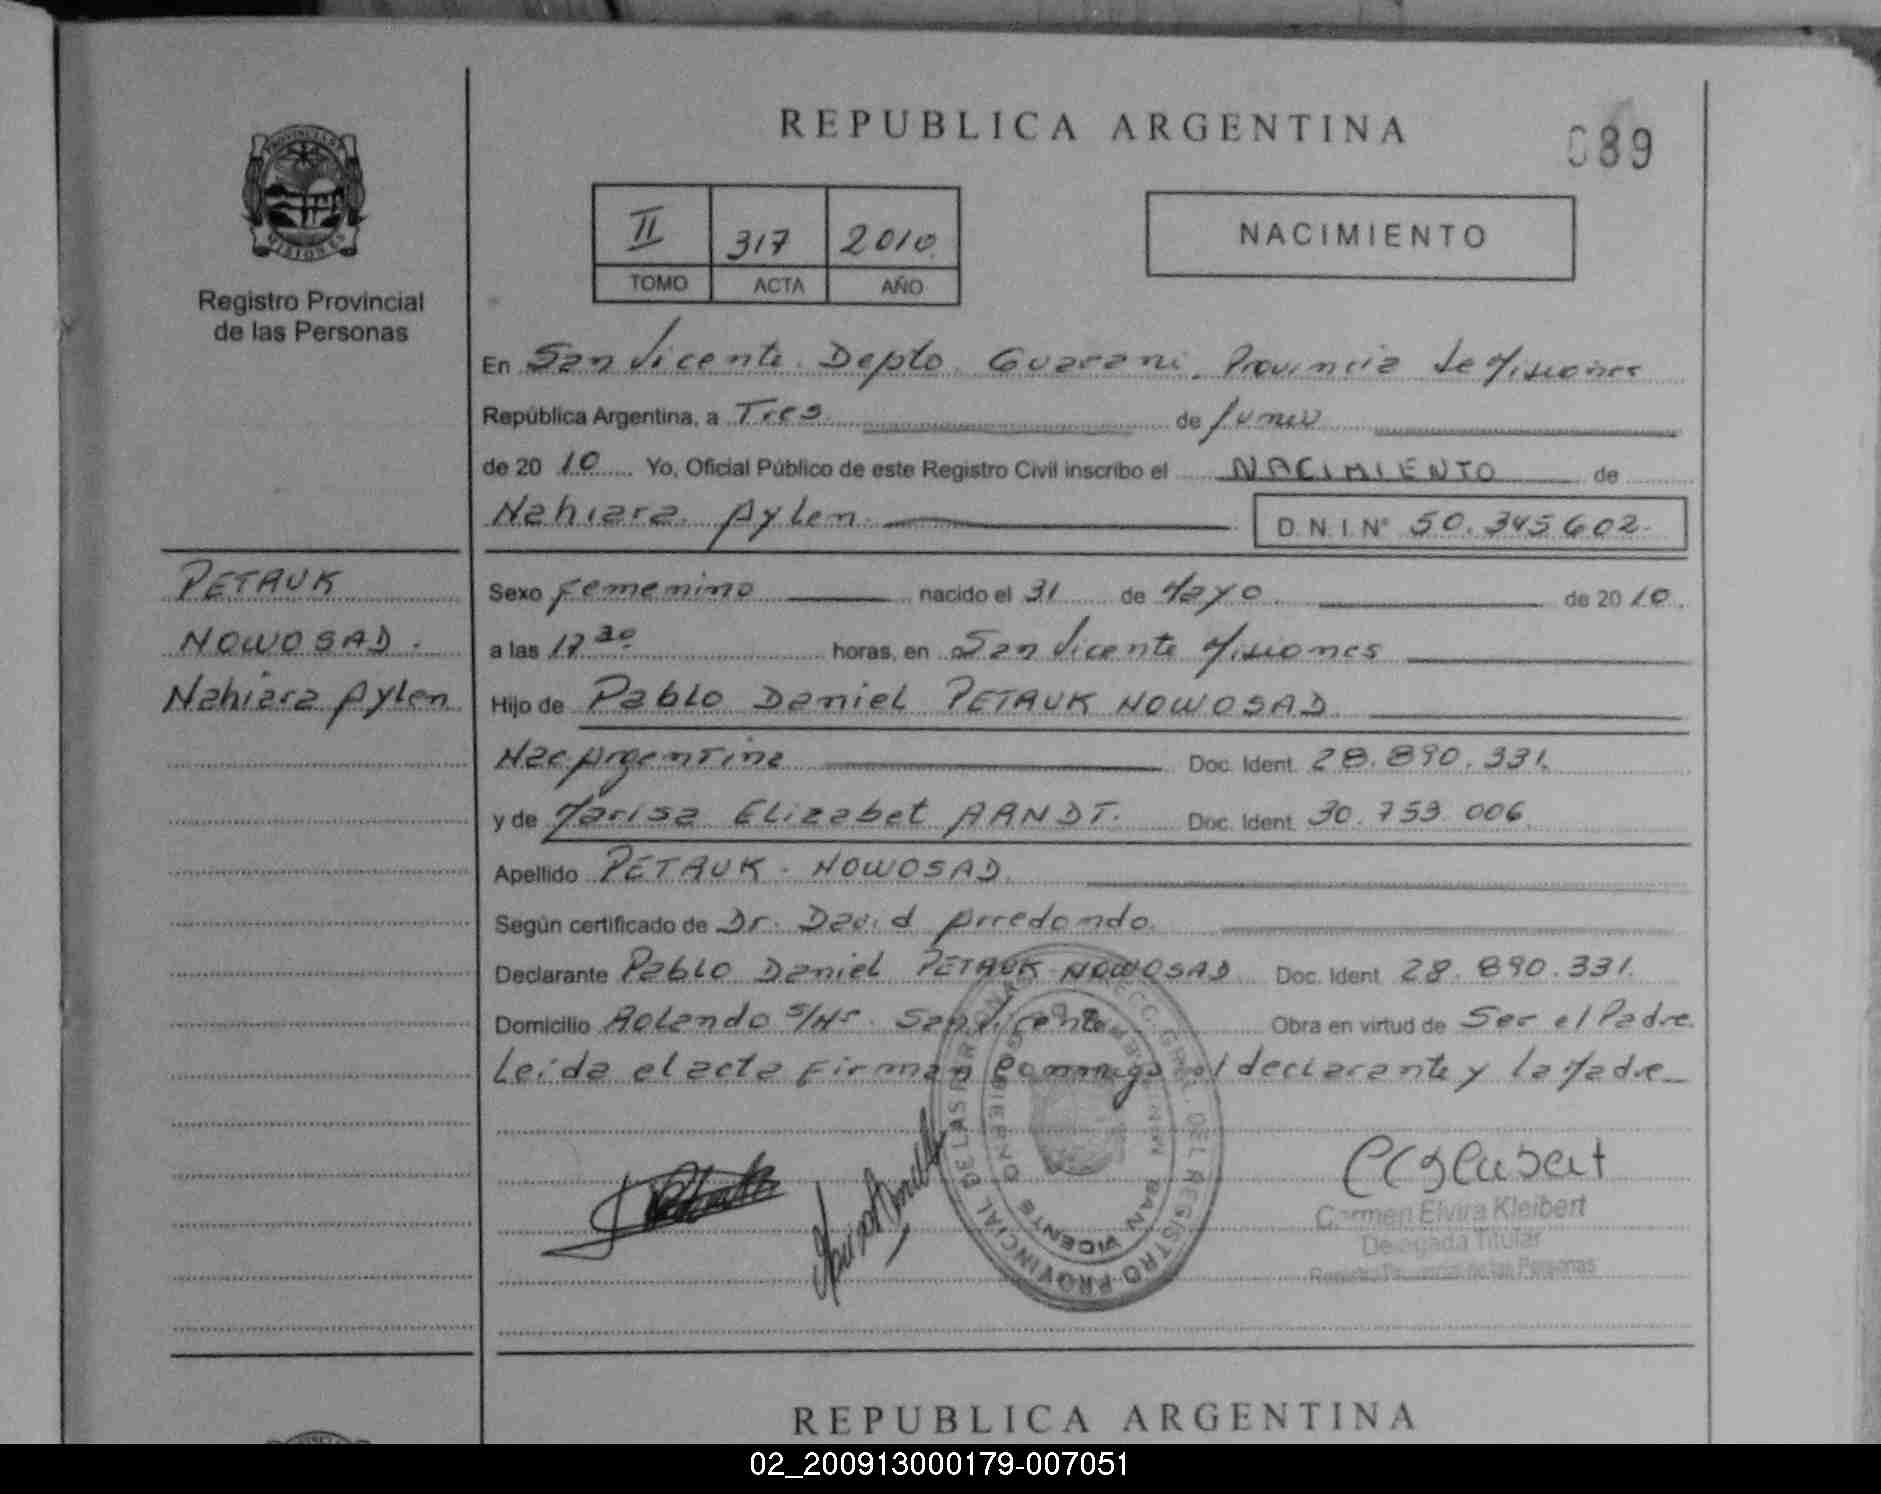 REPUBLICA ARGENTINA
089
PROVINCIA DE
MISIONES
Registro Provincial
de las Personas
II 317 2010
TOMO ACTA AÑO
NACIMIENTO
En San Vicente Depto. Guarani, Provincia de Misiones
República Argentina, a Tres de Junio
de 2010 Yo, Oficial Público de este Registro Civil inscribo el NACIMIENTO de
Nahiara Aylen D.N.I.Nº 50.345.602.
PETRUK
NOWOSAD.
Nahiara Aylen
Sexo Femenino nacido el 31 de Mayo de 2010.
a las 17 30 horas, en San Vicente Misiones
Hijo de Pablo Daniel PETRUK NOWOSAD
Nac Argentina Doc. Ident. 28.890.331.
y de Marisa Elizabet ARNDT. Doc. Ident. 30.753.006
Apellido PETRUK - NOWOSAD
Según certificado de Dr. David Arredondo.
Declarante Pablo Daniel PETRUK NOWOSAD Doc. Ident. 28.890.331.
Domicilio Rolando S/Nº. San Vicente Obra en virtud de Ser el Padre.
Leída el acta firman conmigo el declarante y la Madre
REGISTRO PROVINCIAL DE LAS PERSONAS
SAN VICENTE
Carmen Elvira Kleibert
Delegada Titular
Registro Provincial de las Personas
REPUBLICA ARGENTINA
02_200913000179-007051